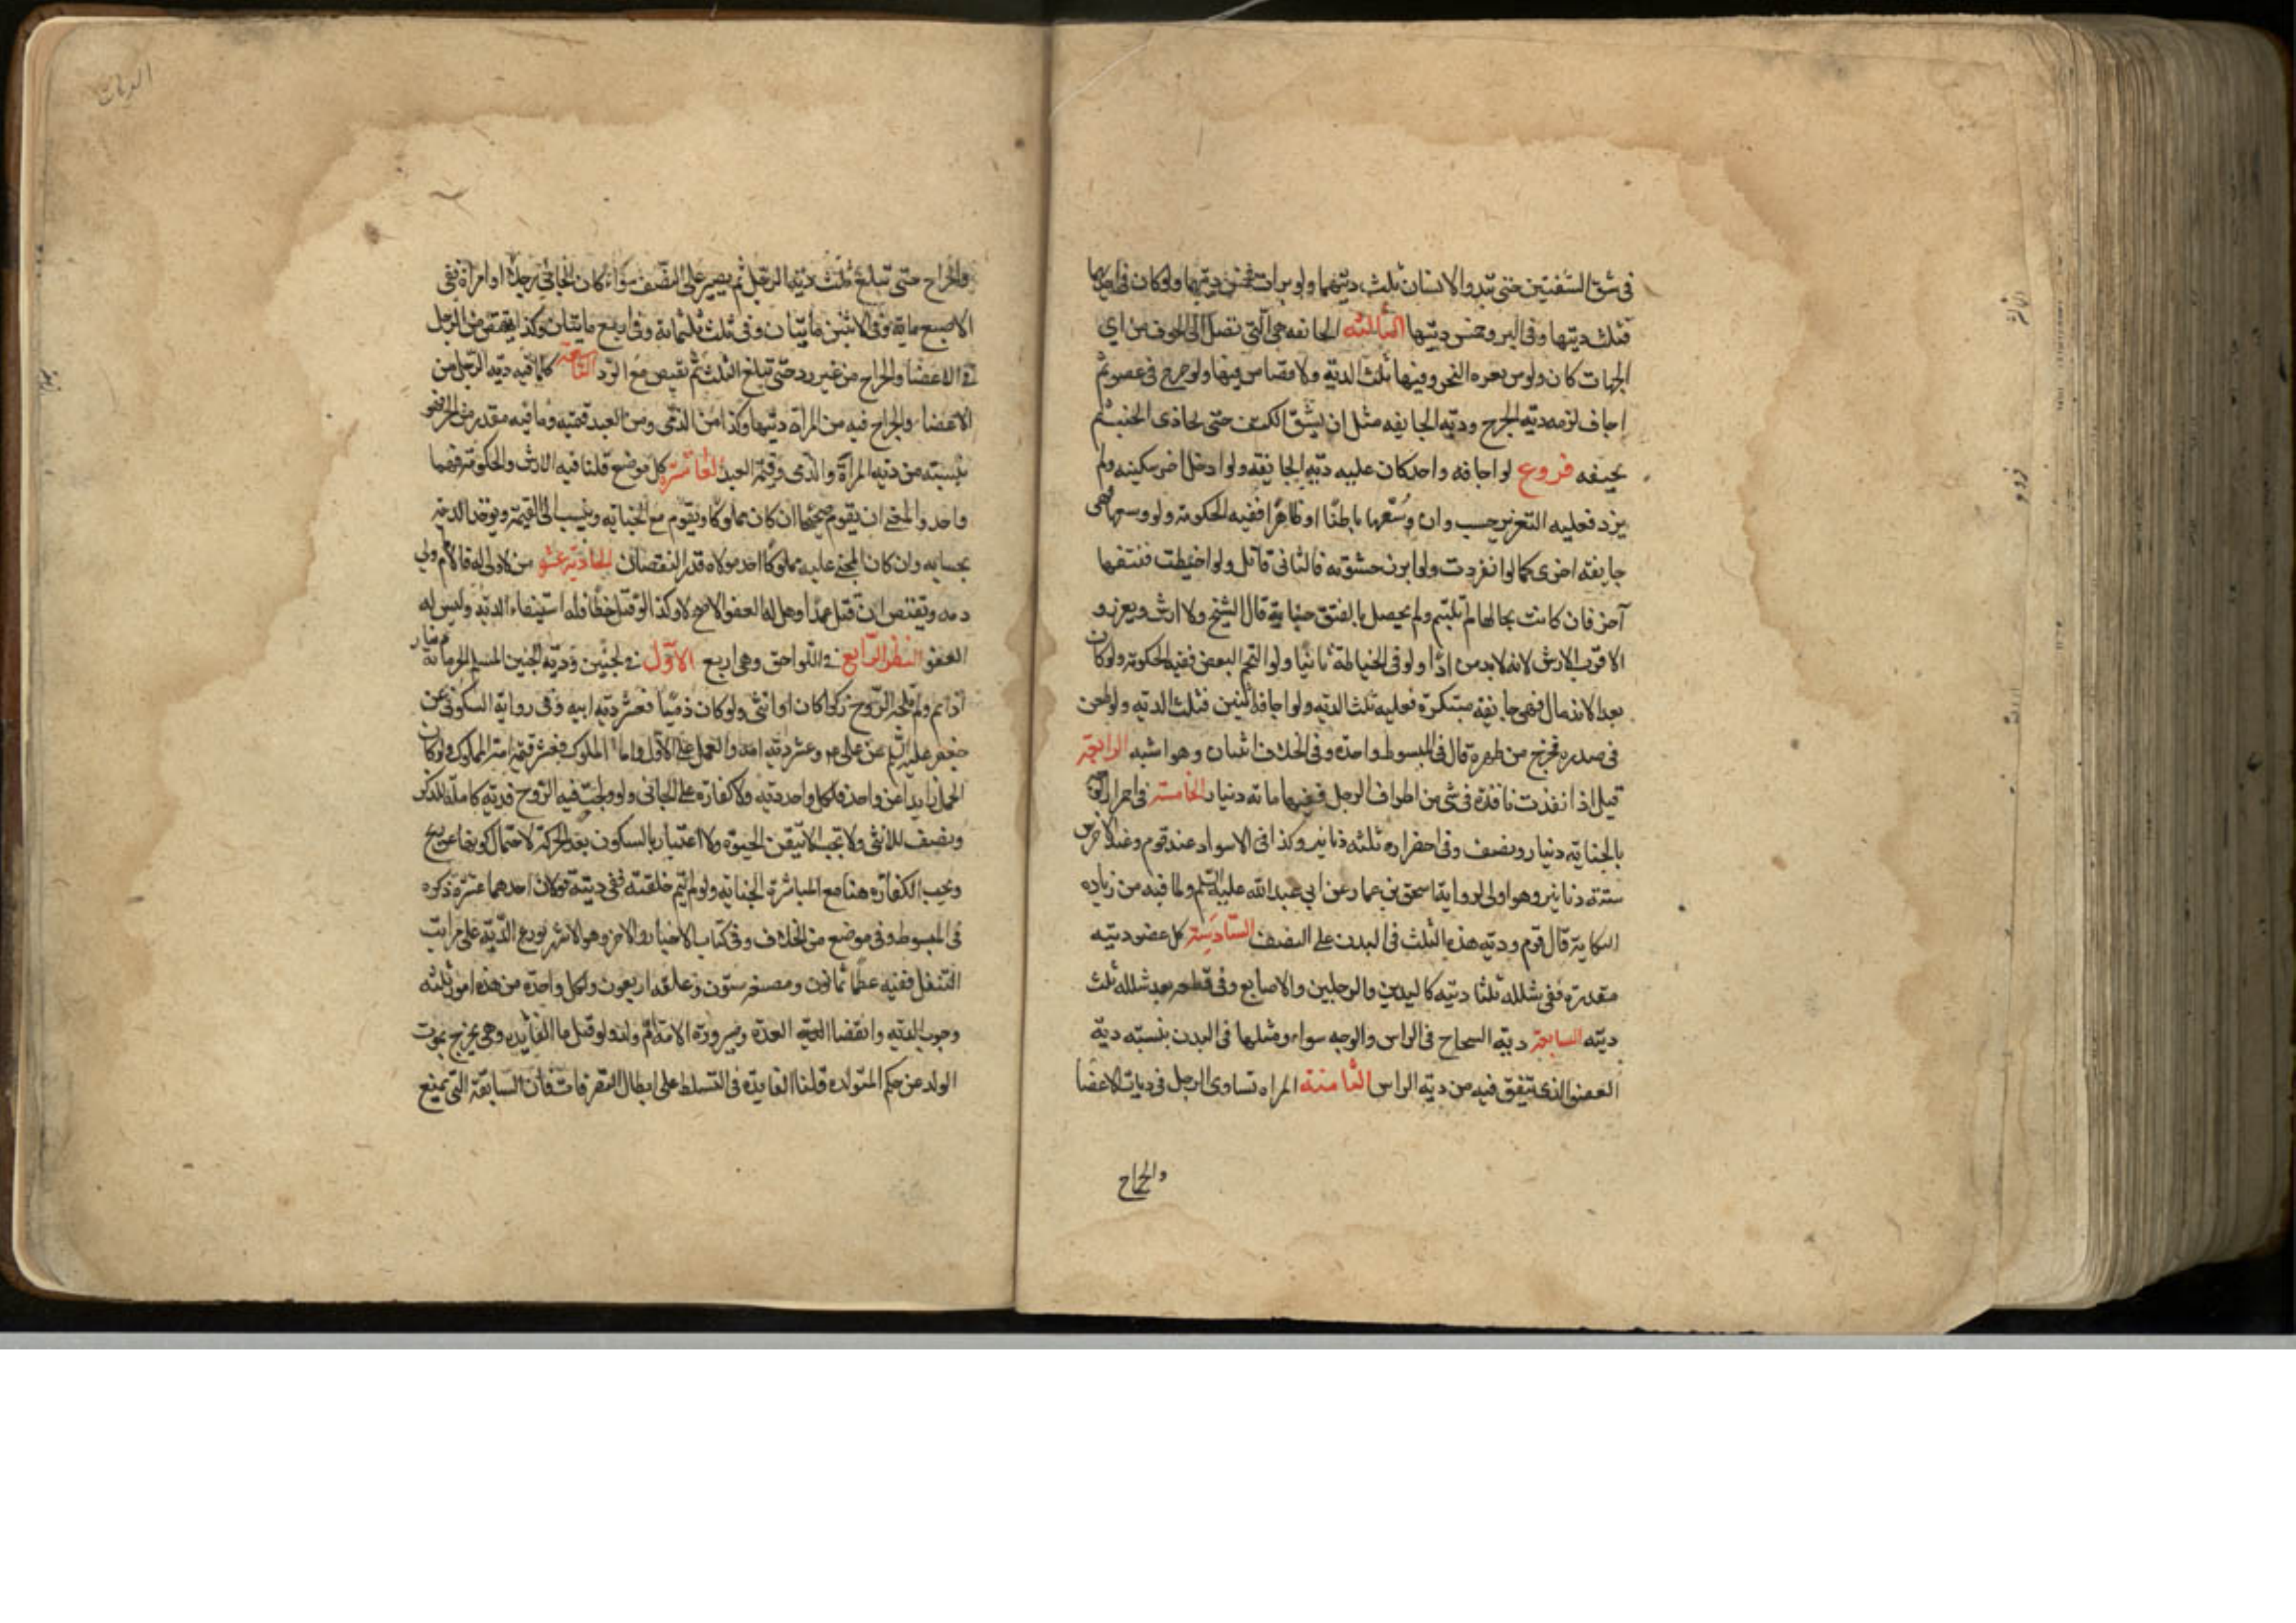 في شق الشفتين حتى تبدو الاسنان ثلث ديتهما ولو برات فخمس ديتهما ولو كان في احديهما
فثلث ديتها وفي البرو خمس ديتها الثالثه الجائفه هي التي تصل الى الجوف من اي
الجهات كان ولو من نغره النحر وفيها ثلث الدية ولا قصاص فيها ولو جرح في عضو ثم
اجاف لزمه دية الجرح ودية الجايفه مثل ان يشق الكتف حتى يحاذي الجنب ثم
يجيفه فروع لو اجافه واحد كان عليه دية الجايفه ولو ادخل اخر سكينه ولم
يزد فعليه التعزير حسب وان وسعها باطنا او ظاهرا ففيه الحكومة ولو وسعهما فهي
جايفة اخرى كما لو انفردت ولو ابرز حشوته فالثاني قاتل ولو اخيطت ففتقها
آخر فان كانت بحالها لم تلتئم ولم يحصل بالفتق جناية قال الشيخ ولا ارش ويعزر و
الاقرب الارش لانه لا بد من اذى ولو في الخياطة ثانيا ولو التحم البعض ففيه الحكومة ولو كان
بعد الاندمال فهي جايفة مبتكرة فعليه ثلث الدية ولو اجافه اثنين فثلثا الدية ولو طعن
في صدره فخرج من ظهره قال في المبسوط واحدة وفي الخلاف اثنتان وهو اشبه الرابعة
قيل اذا نفذت نافذة في شي من اطراف الرجل ففيها مائة دينار الخامسة في احمرار الوجه
بالجناية دينار ونصف وفي اخضراره ثلثه دنانير وكذا في الاسوداد عند قوم وعند الاخرين
ستة دنانير وهو اولى لرواية اسحق بن عمار عن ابي عبدالله عليه السلم ولما فيه من زيادة
النكاية قال قوم ودية هذه الثلث في البدن على النصف السادسة كل عضو ديته
مقدرة ففي شلله ثلثا ديته كاليدين والرجلين والاصابع وفي قطعه بعد شلله ثلث
ديته السابعة دية الشجاج في الراس والوجه سواء ومثلها في البدن بنسبة دية
العضو الذي يتفق فيه من دية الراس الثامنة المراه تساوي الرجل في ديات الاعضا
والجراح
الديات
والجراح حتى تبلغ ثلث دية الرجل ثم يصير على النصف سواء كان الجاني رجلا او امراة ففي
الاصبع ماية وفي الاثنين مايتان وفي ثلث ثلثماية وفي اربع مايتان وكذا يقتص من الرجل
في الاعضا والجراح من غير رد حتى تبلغ الثلث ثم تقتص مع الرد التاسعة كلما فيه دية الرجل من
الاعضا والجراح فيه من المراة ديتها وكذا من الذمي ومن العبد قيمته وما فيه مقدر من الحر فهو
بنسبته من دية المراة والذمي وقيمة العبد العاشرة كل موضع قلنا فيه الارش والحكومة فهما
واحد والمعنى ان يقوم صحيحا ان كان مملوكا ويقوم مع الجناية وينسب الى القيمة ويوخذ الدية
بحسابه وان كان المجنى عليه مملوكا اخذ مولاه قدر النقصان الحادية عشر من لا ولي له فالامام ولي
دمه ويقتص ان قتل عمدا وهل له العفو الاصح لا وكذا لو قتل خطأ فله استيفاء الدية وليس له
العفو النظر الرابع في اللواحق وهي اربع الاول في الجنين ودية الجنين المسلم الحر ماية دينار
اذا تم ولم تلجه الروح ذكرا كان او انثى ولو كان ذميا فعشر دية ابيه وفي رواية السكوني عن
جعفر عليه السلم عن علي ع وعشر دية امه والعمل على الاول واما المملوك فعشر قيمة امة المملوكة ولو كان
الحمل زايدا عن واحد فلكل واحد دية ولا كفارة على الجاني ولو ولجت فيه الروح فدية كاملة للذكر
ونصف للانثى ولا تجب الا بتيقن الحيوة ولا اعتبار بالسكون بعد الحركة لاحتمال كونها عن ريح
ويجب الكفارة هنا مع المباشرة الجناية ولو لم يتم خلقته ففي ديتة قولان احدهما غرة ذكره
في المبسوط وفي موضع من الخلاف وفي كتاب الاخبار والاخر وهو الاشهر توزيع الدية على مراتب
التنقل ففيه عظما ثمانون ومضغة ستون وعلقة اربعون ولكل واحدة من هذه امور ثلثه
وجوب الدية وانقضا العدة وصيرورة الامة ام ولد ولو قيل ما الفايدة وهي يخرج بموت
الولد عن حكم المتولدة قلنا الفايدة في التسلط على ابطال التصرفات فان السابقة التي يمنع